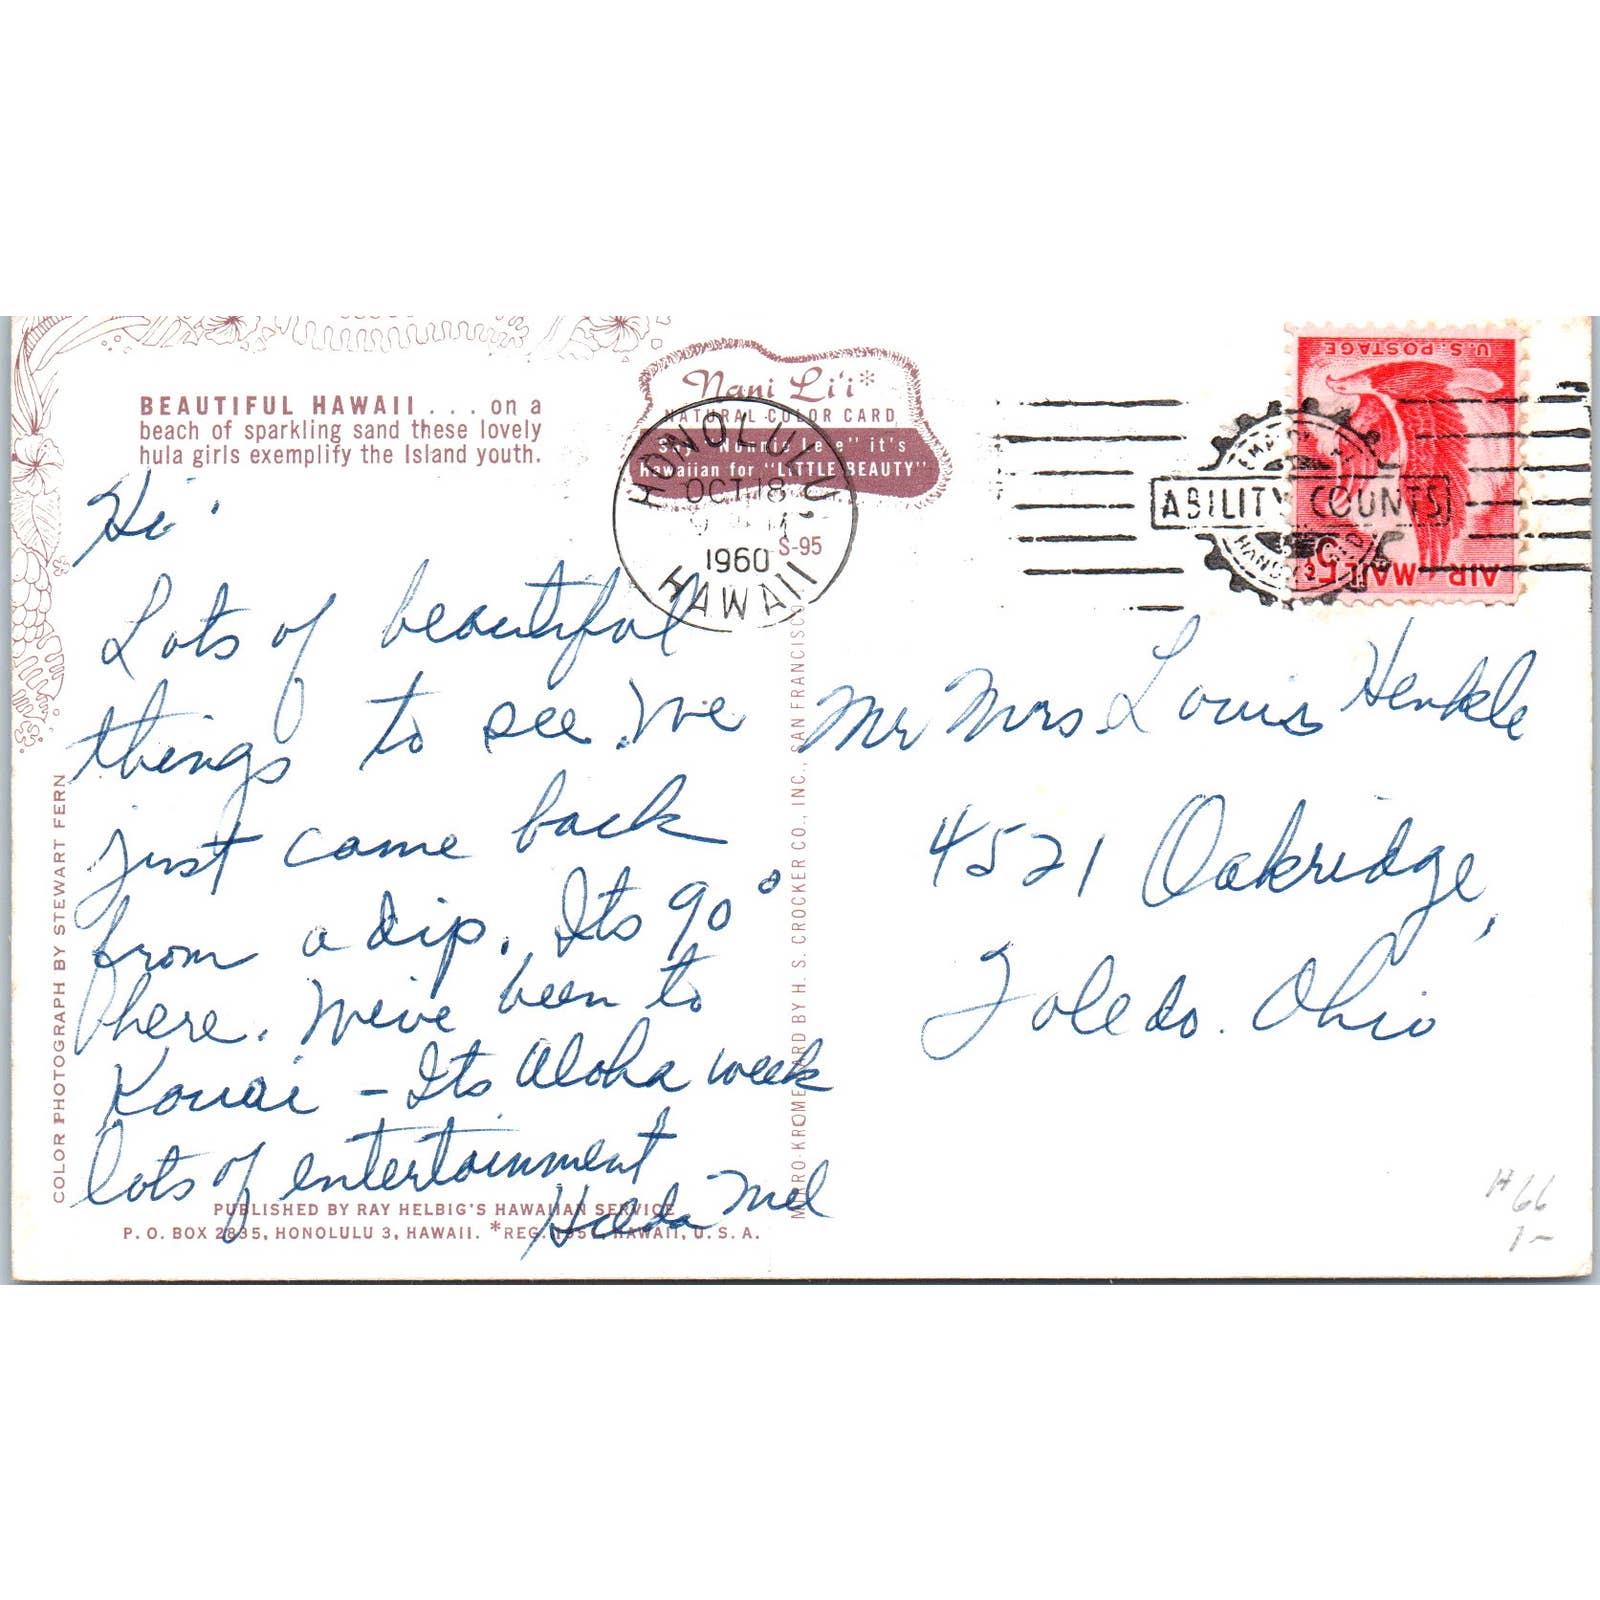 BEAUTIFUL HAWAII . . . on a
beach of sparkling sand these lovely
hula girls exemplify the Island youth.
Nani Li'i*
NATURAL COLOR CARD
"Nonnie Lee" it's
Hawaiian for "LITTLE BEAUTY"
S-95
HONOLULU,
OCT 18
1960
HAWAII
ABILITY COUNTS
U.S. POSTAGE
5¢
AIR MAIL
Hi.
Lots of beautiful
things to see. We
just came back
from a dip. Its 90°
here. We've been to
Kauai - Its Aloha week
lots of entertainment
Hilda Mel
Mr Mrs. Louis Henkle
4521 Oakridge,
Toledo. Ohio
COLOR PHOTOGRAPH BY STEWART FERN
PUBLISHED BY RAY HELBIG'S HAWAIIAN SERVICE
P. O. BOX 2835, HONOLULU 3, HAWAII. *REG. HAWAII, U. S. A.
MIRRO-KROME CARD BY H. S. CROCKER CO., INC., SAN FRANCISCO
#66
1-